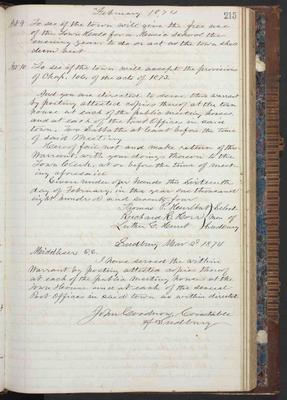 February 1874
215
Art 9. To see if the town will give the free use
of the Town Hall for a Music School the
ensuing year, to do or act as the town shall
deem best.
Art 10. To see if the town will accept the provisions
of Chap. 106 of the acts of 1873.
And you are directed to serve this warrant
by posting attested copies thereof at the town
house at each of the public meeting houses
and at each of the Post Offices in said
town, Two Sabbaths at least before the time
of said Meeting.
Hereof fail not and make return of this
Warrant with your doings thereon to the
Town Clerk, at or before the time of meet-
ing aforesaid
Given under our hands this Sixteenth
day of February, in the year one thousand
eight hundred and seventy four
Thomas P. Hurlbut
Select
Richard R.
men of
Luther E.
Sudbury
Sudbury Mar 2d 1874
Middlesex SS.
I have served the within
Warrant by posting attested copies thereof
at each of the public Meeting houses at the
Town House and at each of the several
Post Offices in said town as within directed
John Goodnow, Constable
of Sudbury